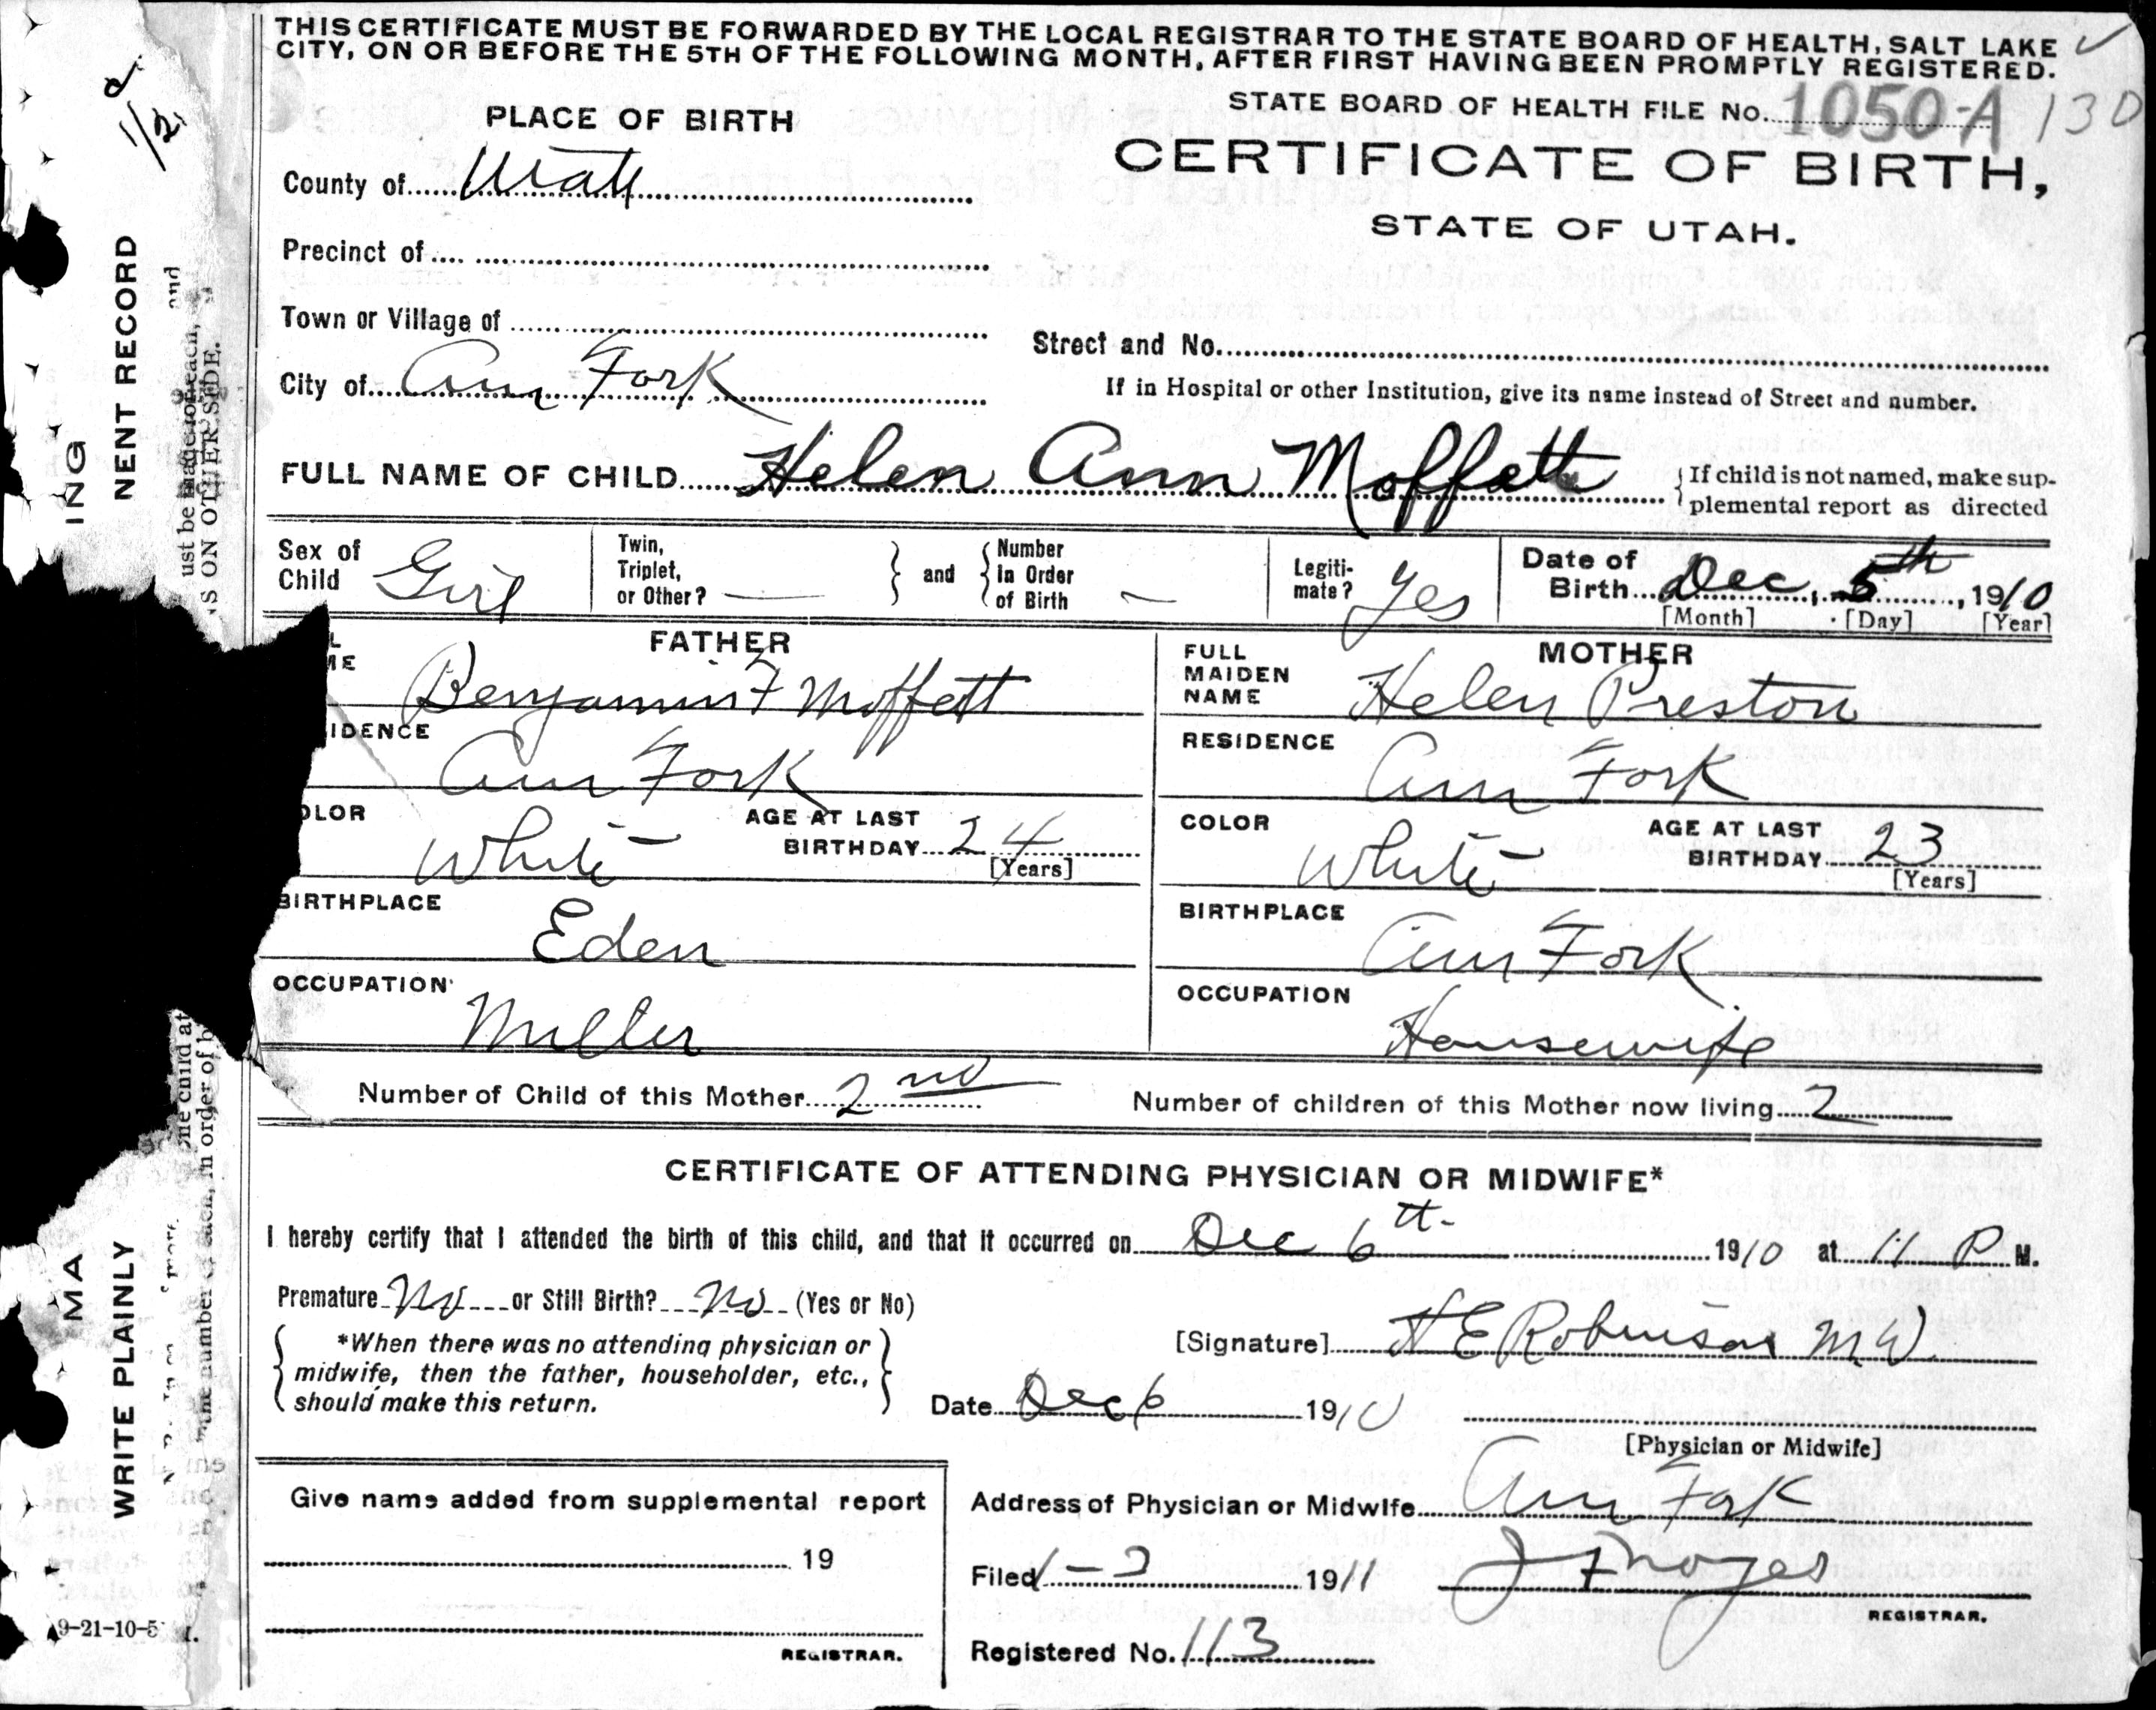 THIS CERTIFICATE MUST BE FORWARDED BY THE LOCAL REGISTRAR TO THE STATE BOARD OF HEALTH, SALT LAKE
CITY, ON OR BEFORE THE 5TH OF THE FOLLOWING MONTH, AFTER FIRST HAVING BEEN PROMPTLY REGISTERED.
STATE BOARD OF HEALTH FILE No. 1050-A 130
PLACE OF BIRTH
CERTIFICATE OF BIRTH,
STATE OF UTAH.
County of Utah
Precinct of
Town or Village of
Street and No.
City of Am Fork
If in Hospital or other Institution, give its name instead of Street and number.
FULL NAME OF CHILD Helen Ann Moffett
If child is not named, make sup-
plemental report as directed
Sex of Child Girl
Twin, Triplet, or Other? —
and
Number In Order of Birth —
Legiti-mate? Yes
Date of Birth Dec, 5th, 1910
[Month] [Day] [Year]
FATHER
Benjamin F Moffett
IDENCE
Am Fork
OLOR
White
AGE AT LAST BIRTHDAY 24
[Years]
BIRTHPLACE
Eden
OCCUPATION
Miller
MOTHER
FULL MAIDEN NAME
Helen Preston
RESIDENCE
Am Fork
COLOR
White
AGE AT LAST BIRTHDAY 23
[Years]
BIRTHPLACE
Am Fork
OCCUPATION
Housewife
Number of Child of this Mother 2nd
Number of children of this Mother now living 2
CERTIFICATE OF ATTENDING PHYSICIAN OR MIDWIFE*
I hereby certify that I attended the birth of this child, and that it occurred on Dec 6th 1910 at 11 P M.
Premature No or Still Birth? No (Yes or No)
*When there was no attending physician or
midwife, then the father, householder, etc.,
should make this return.
[Signature] E Robinson M W
Date Dec 6 1910
[Physician or Midwife]
Address of Physician or Midwife Am Fork
Give name added from supplemental report
19
REGISTRAR.
Filed 1-2 1911
J F Noyes
REGISTRAR.
Registered No. 113
1/2
ING
NENT RECORD
and
ust be made for each,
S ON OTHER SIDE.
MA
WRITE PLAINLY
one child at
the number of each, in order of b
9-21-10-5